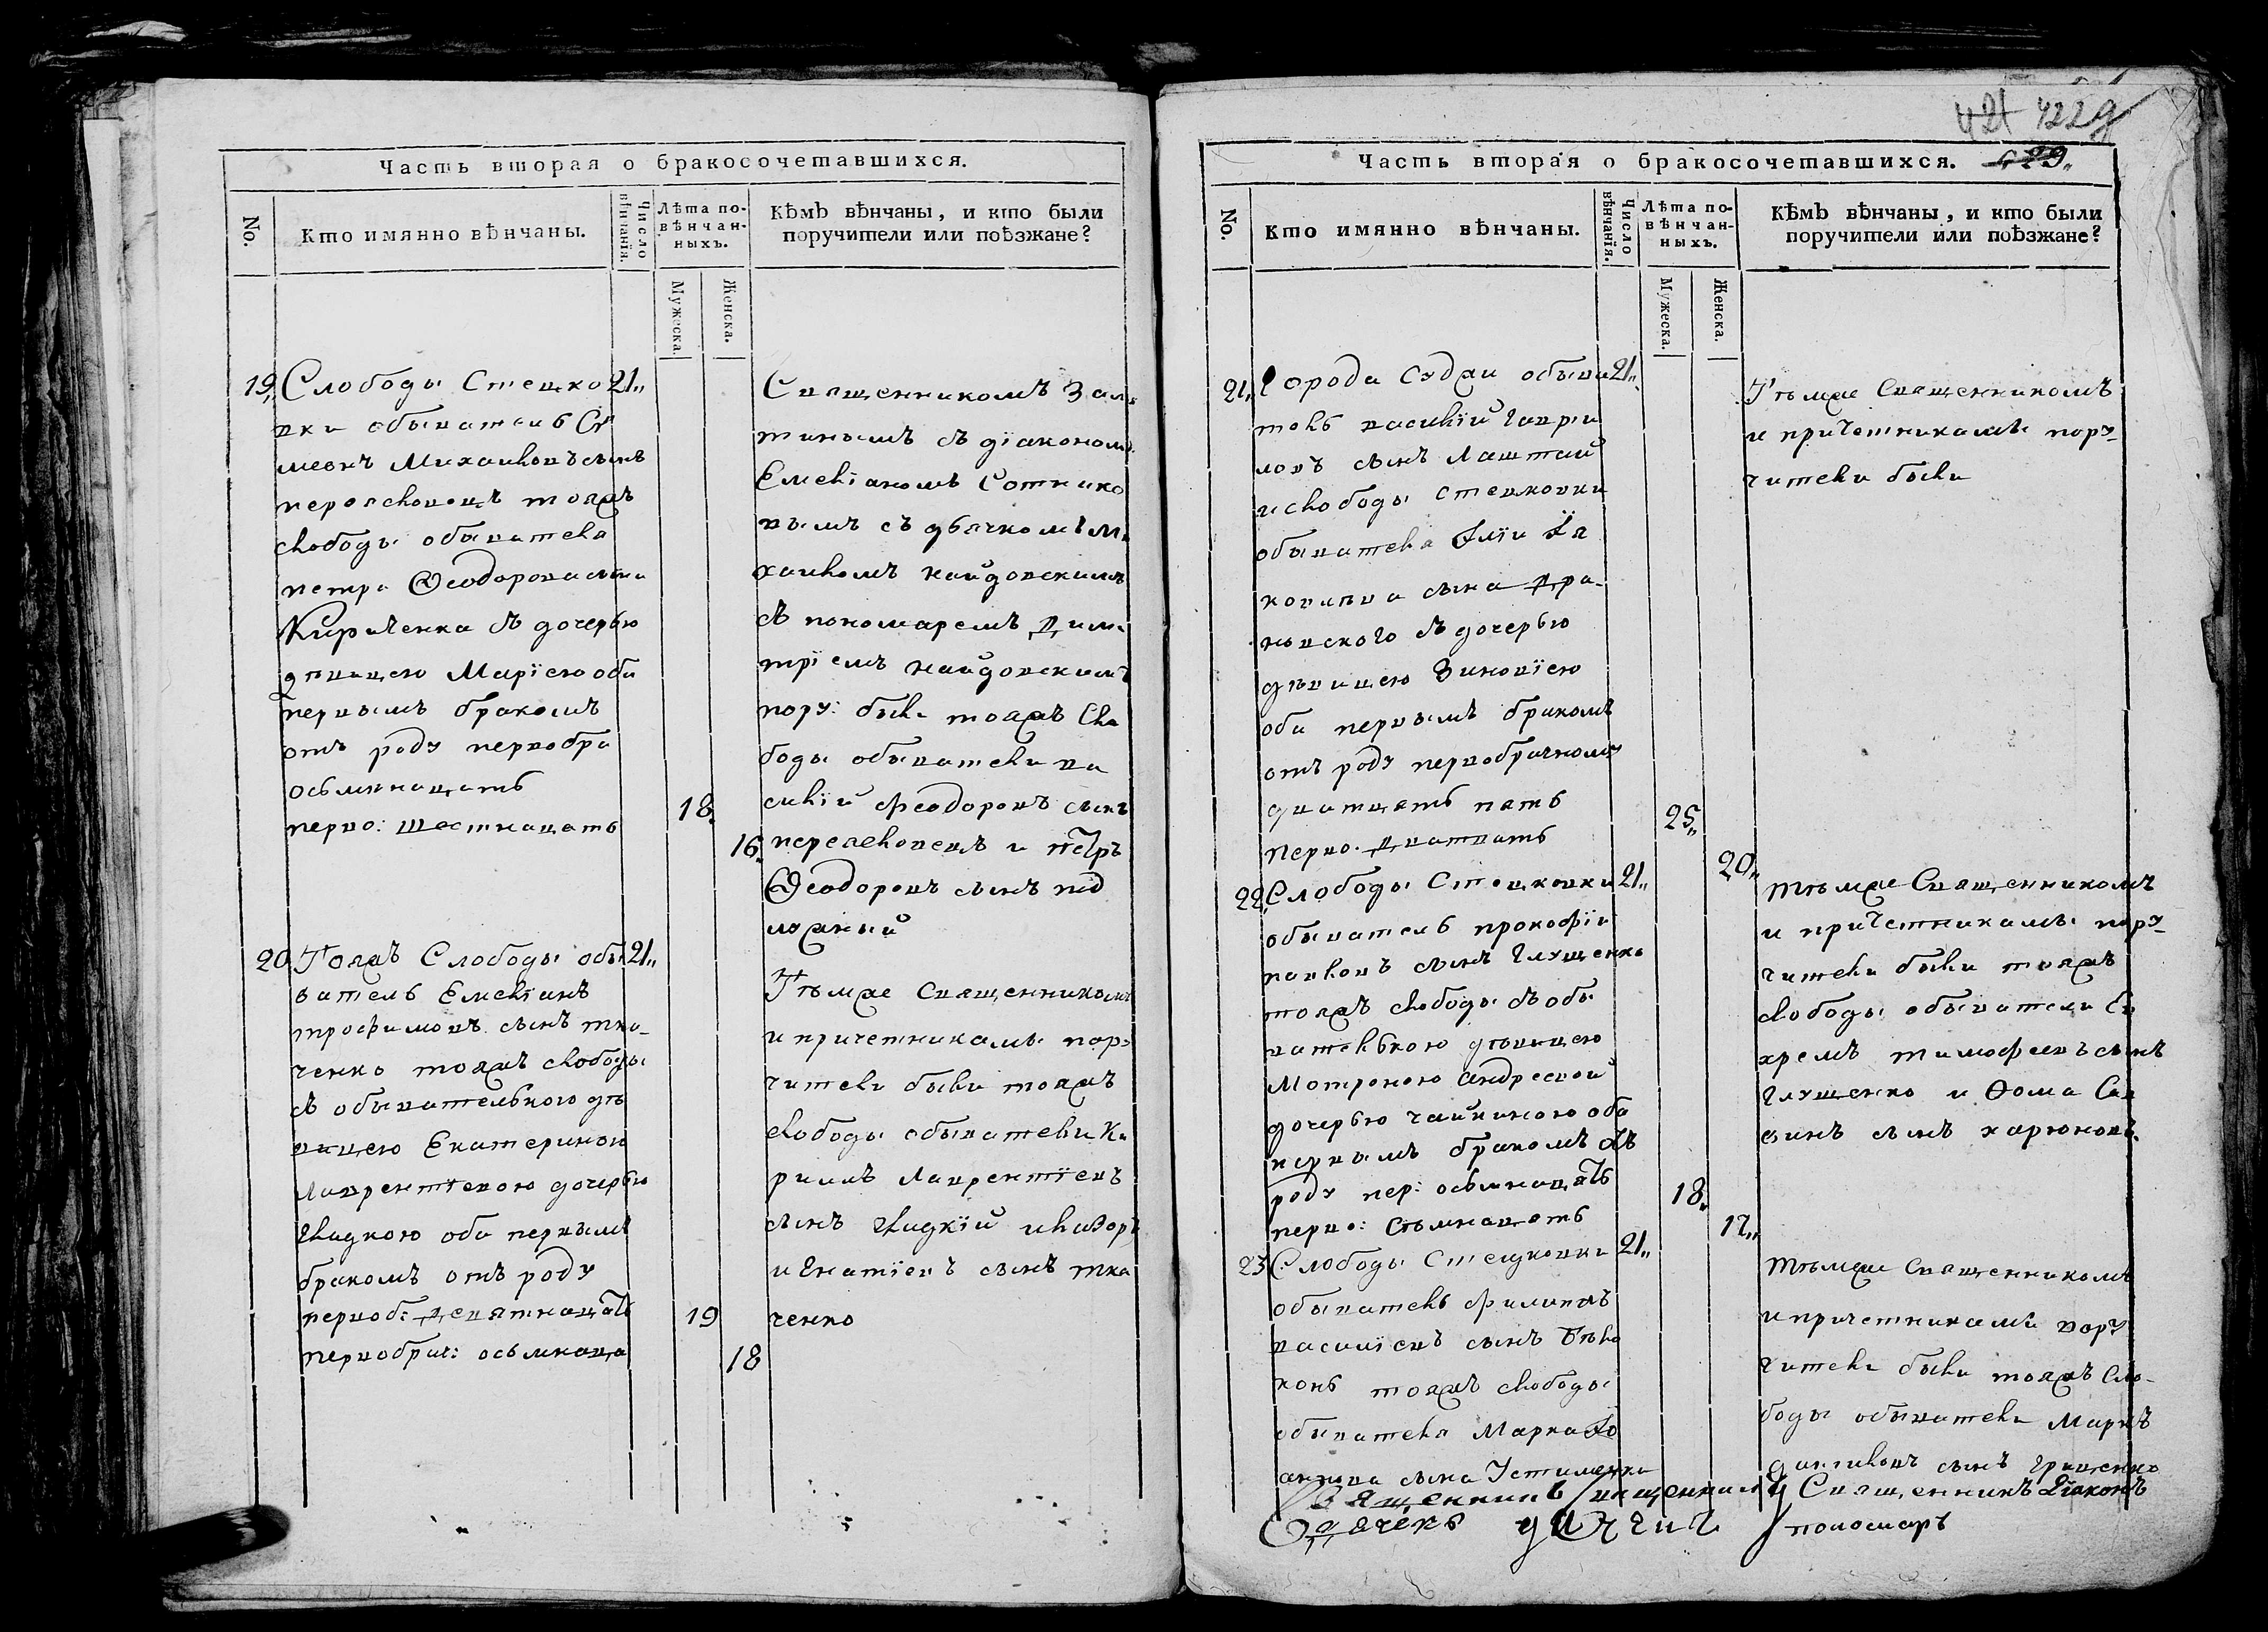 Часть вторая о бракосочетавшихся.
No.
Кто имянно вѣнчаны.
Число вѣнчанія.
Лѣта по-
вѣнчан-
ныхъ.
Мужеска.
Женска.
Кѣмъ вѣнчаны, и кто были
поручители или поѣзжане?
19, Слободы Стецко 21"
вки обыватель Си
меонъ Михайловъ сынъ
тояжъ
слободы обывателя
петра Ѳеодорова сына
Кириченка съ дочерью
дѣвицею Маріею оба
первымъ бракомъ
отъ роду первобра
осьмнацать
перво: шестнацать
18.
16.
Священникомъ Зал
тинымъ съ діакономъ
Емеліаномъ Сотнико
вымъ съ дьячкомъ Ми
хаиломъ найдовскимъ
съ пономаремъ Дими
тріемъ найдовскимъ
пору: были тояжъ Сло
боды обыватели ва
силій Феодоровъ сынъ
и петръ
Ѳеодоровъ сынъ под
ложный
20 Тояжъ Слободы обы 21"
ватель Емеліанъ
трофимовъ сынъ тка-
ченко тояжъ слободы
съ обывательскою дѣ
вицею Екатериною
Лаврентіевою дочерью
гладкою оба первымъ
бракомъ отъ роду
первоб: девятнацать
первобрач: осьмнаца
19
18
Тѣмже Священникомъ
и причетниками пору
чители были тояжъ
слободы обыватели Ки
рилъ Лаврентіевъ
сынъ гладкій
игнатіевъ сынъ тка
ченко
421 422
Часть вторая о бракосочетавшихся.
No.
Кто имянно вѣнчаны.
Число вѣнчанія.
Лѣта по-
вѣнчан-
ныхъ.
Мужеска.
Женска.
Кѣмъ вѣнчаны, и кто были
поручители или поѣзжане?
21" Города Суджи обыва 21"
тель василій гаври
ловъ сынъ Лаштай
и слободы стецковки
обывателя Иліи Іа
ковлева сына
съ дочерью
дѣвицею Зиновіею
оба первымъ бракомъ
отъ роду первобрачному
дватцать пять
перво. дватцать
25"
20"
Тѣмже Священникомъ
и причетниками пору-
чители были
22, Слободы Стецковки 21"
обыватель прокофій
павловъ сынъ Глущенко
тояжъ слободы съ обы
вательскою дѣвицею
Мотроною андреевой
дочерью чайкиною оба
первымъ бракомъ отъ
роду пер: осьмнацать
перво: семнацать
18.
17"
тѣмже Священникомъ
и причетниками пору-
чители были тояжъ
слободы обыватели Ев
хремъ тимофеевъ сынъ
Глущенко и Ѳома Сав
винъ сынъ харюновъ.
23 Слободы Стецковки 21"
обыватель филиппъ
василіевъ сынъ Бѣло
конь тояжъ слободы
обывателя Марка Іо
аннова сына Устименка
тѣмже Священникомъ
и причетниками пору
чители были тояжъ Сло-
боды обыватели Маркъ
даниловъ сынъ Грищенко
Священникъ
Священникъ Діаконъ
Дячекъ
пономарь